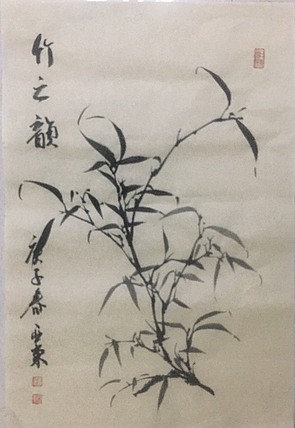 竹之韻
庚子春亚東